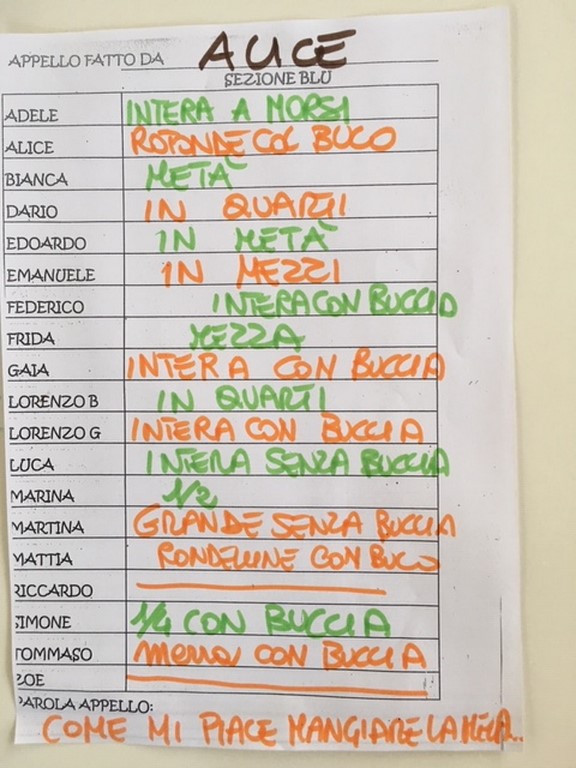 APPELLO FATTO DA ALICE
SEZIONE BLU
ADELE INTERA A MORSI
ALICE ROTONDE COL BUCO
BIANCA METÀ
DARIO IN QUARTI
EDOARDO IN METÀ
EMANUELE IN MEZZI
FEDERICO INTERA CON BUCCIA
FRIDA MEZZA
GAIA INTERA CON BUCCIA
LORENZO B IN QUARTI
LORENZO G INTERA CON BUCCIA
LUCA INTERA SENZA BUCCIA
MARINA 1/2
MARTINA GRANDE SENZA BUCCIA
MATTIA RONDELLINE CON BUCO
RICCARDO
SIMONE 1/4 CON BUCCIA
TOMMASO CON BUCCIA
ZOE
PAROLA APPELLO:
COME MI PIACE MANGIARE LA MELA..